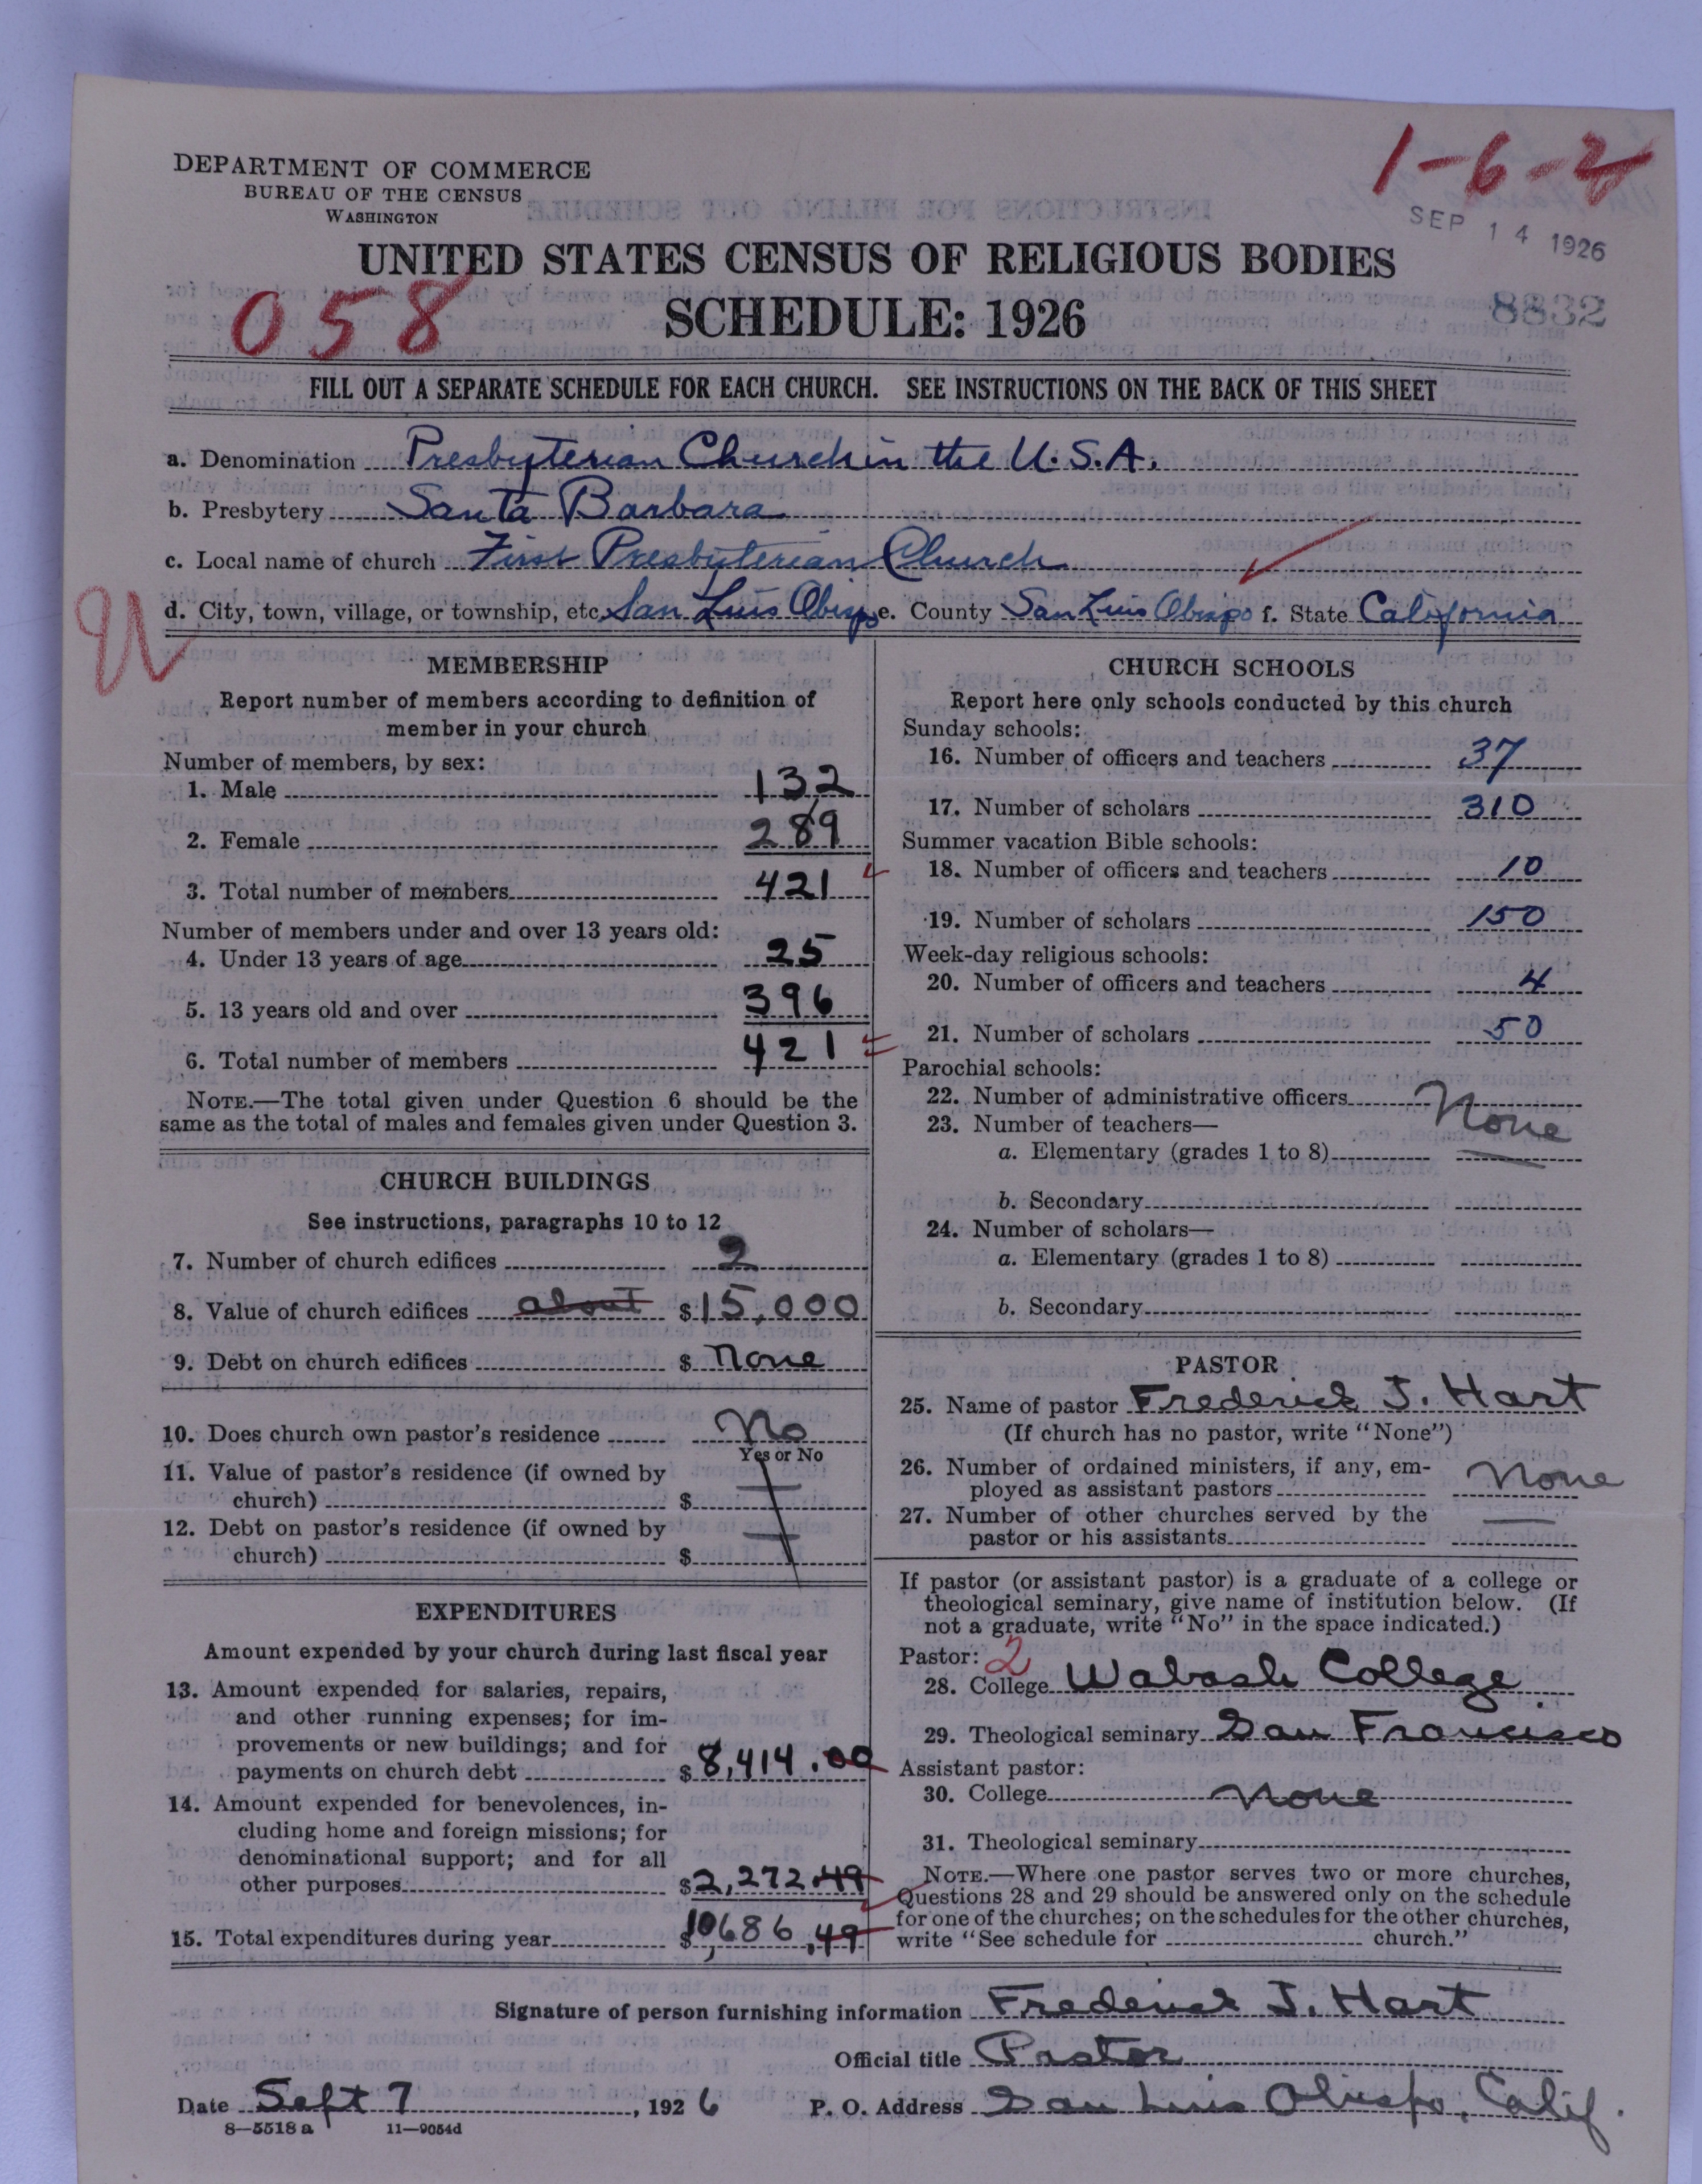 1-6-2
DEPARTMENT OF COMMERCE
BUREAU OF THE CENSUS
WASHINGTON
SEP 14 1926
UNITED STATES CENSUS OF RELIGIOUS BODIES
058
SCHEDULE: 1926
8832
FILL OUT A SEPARATE SCHEDULE FOR EACH CHURCH. SEE INSTRUCTIONS ON THE BACK OF THIS SHEET
a. Denomination Presbyterian Church in the U.S.A.
b. Presbytery Santa Barbara
c. Local name of church First Presbyterian Church
d. City, town, village, or township, etc. San Luis Obispo e. County San Luis Obispo f. State California
MEMBERSHIP
Report number of members according to definition of
member in your church
Number of members, by sex:
1. Male 132
2. Female 289
3. Total number of members 421
Number of members under and over 13 years old:
4. Under 13 years of age 25
5. 13 years old and over 396
6. Total number of members 421
NOTE.—The total given under Question 6 should be the
same as the total of males and females given under Question 3.
CHURCH BUILDINGS
See instructions, paragraphs 10 to 12
7. Number of church edifices 2
8. Value of church edifices about $15,000
9. Debt on church edifices $ None
10. Does church own pastor's residence No
Yes or No
11. Value of pastor's residence (if owned by
church) $
12. Debt on pastor's residence (if owned by
church) $
EXPENDITURES
Amount expended by your church during last fiscal year
13. Amount expended for salaries, repairs,
and other running expenses; for im-
provements or new buildings; and for
payments on church debt $8,414.00
14. Amount expended for benevolences, in-
cluding home and foreign missions; for
denominational support; and for all
other purposes $2,272.49
15. Total expenditures during year $10,686.49
CHURCH SCHOOLS
Report here only schools conducted by this church
Sunday schools:
16. Number of officers and teachers 37
17. Number of scholars 310
Summer vacation Bible schools:
18. Number of officers and teachers 10
19. Number of scholars 150
Week-day religious schools:
20. Number of officers and teachers 4
21. Number of scholars 50
Parochial schools:
22. Number of administrative officers None
23. Number of teachers—
a. Elementary (grades 1 to 8)
b. Secondary
24. Number of scholars—
a. Elementary (grades 1 to 8)
b. Secondary
PASTOR
25. Name of pastor Frederick J. Hart
(If church has no pastor, write "None")
26. Number of ordained ministers, if any, em-
ployed as assistant pastors None
27. Number of other churches served by the
pastor or his assistants —
If pastor (or assistant pastor) is a graduate of a college or
theological seminary, give name of institution below. (If
not a graduate, write "No" in the space indicated.)
Pastor: 2
28. College Wabash College.
29. Theological seminary San Francisco
Assistant pastor:
30. College None
31. Theological seminary
NOTE.—Where one pastor serves two or more churches,
Questions 28 and 29 should be answered only on the schedule
for one of the churches; on the schedules for the other churches,
write "See schedule for church."
Signature of person furnishing information Frederick J. Hart
Official title Pastor
Date Sept 7, 1926 P. O. Address San Luis Obispo, Calif.
8—5518 a 11—9054d